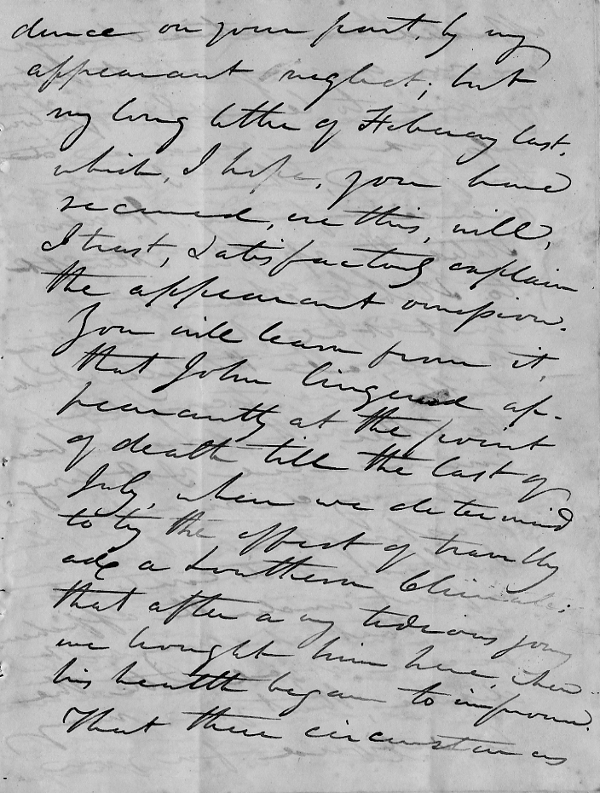 dence on your part, by my
appearant neglect; but
my long letter of Febuary last,
which, I hope, you have
received, ere this, will,
I trust, satisfactorly explain
the appearant omission.
You will learn from it,
that John lingered ap-
pearantly at the point
of death till the last of
July, when we determined
to try the effect of travelling
and a Southern Climate;
that after a very tedious journey
we brought him here, when
his health began to improve.
That these circumstances